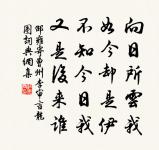 向日所云我
如今却是伊
不知今日我
又是後来谁
邵雍寄曹州李审言龙
图词典网集